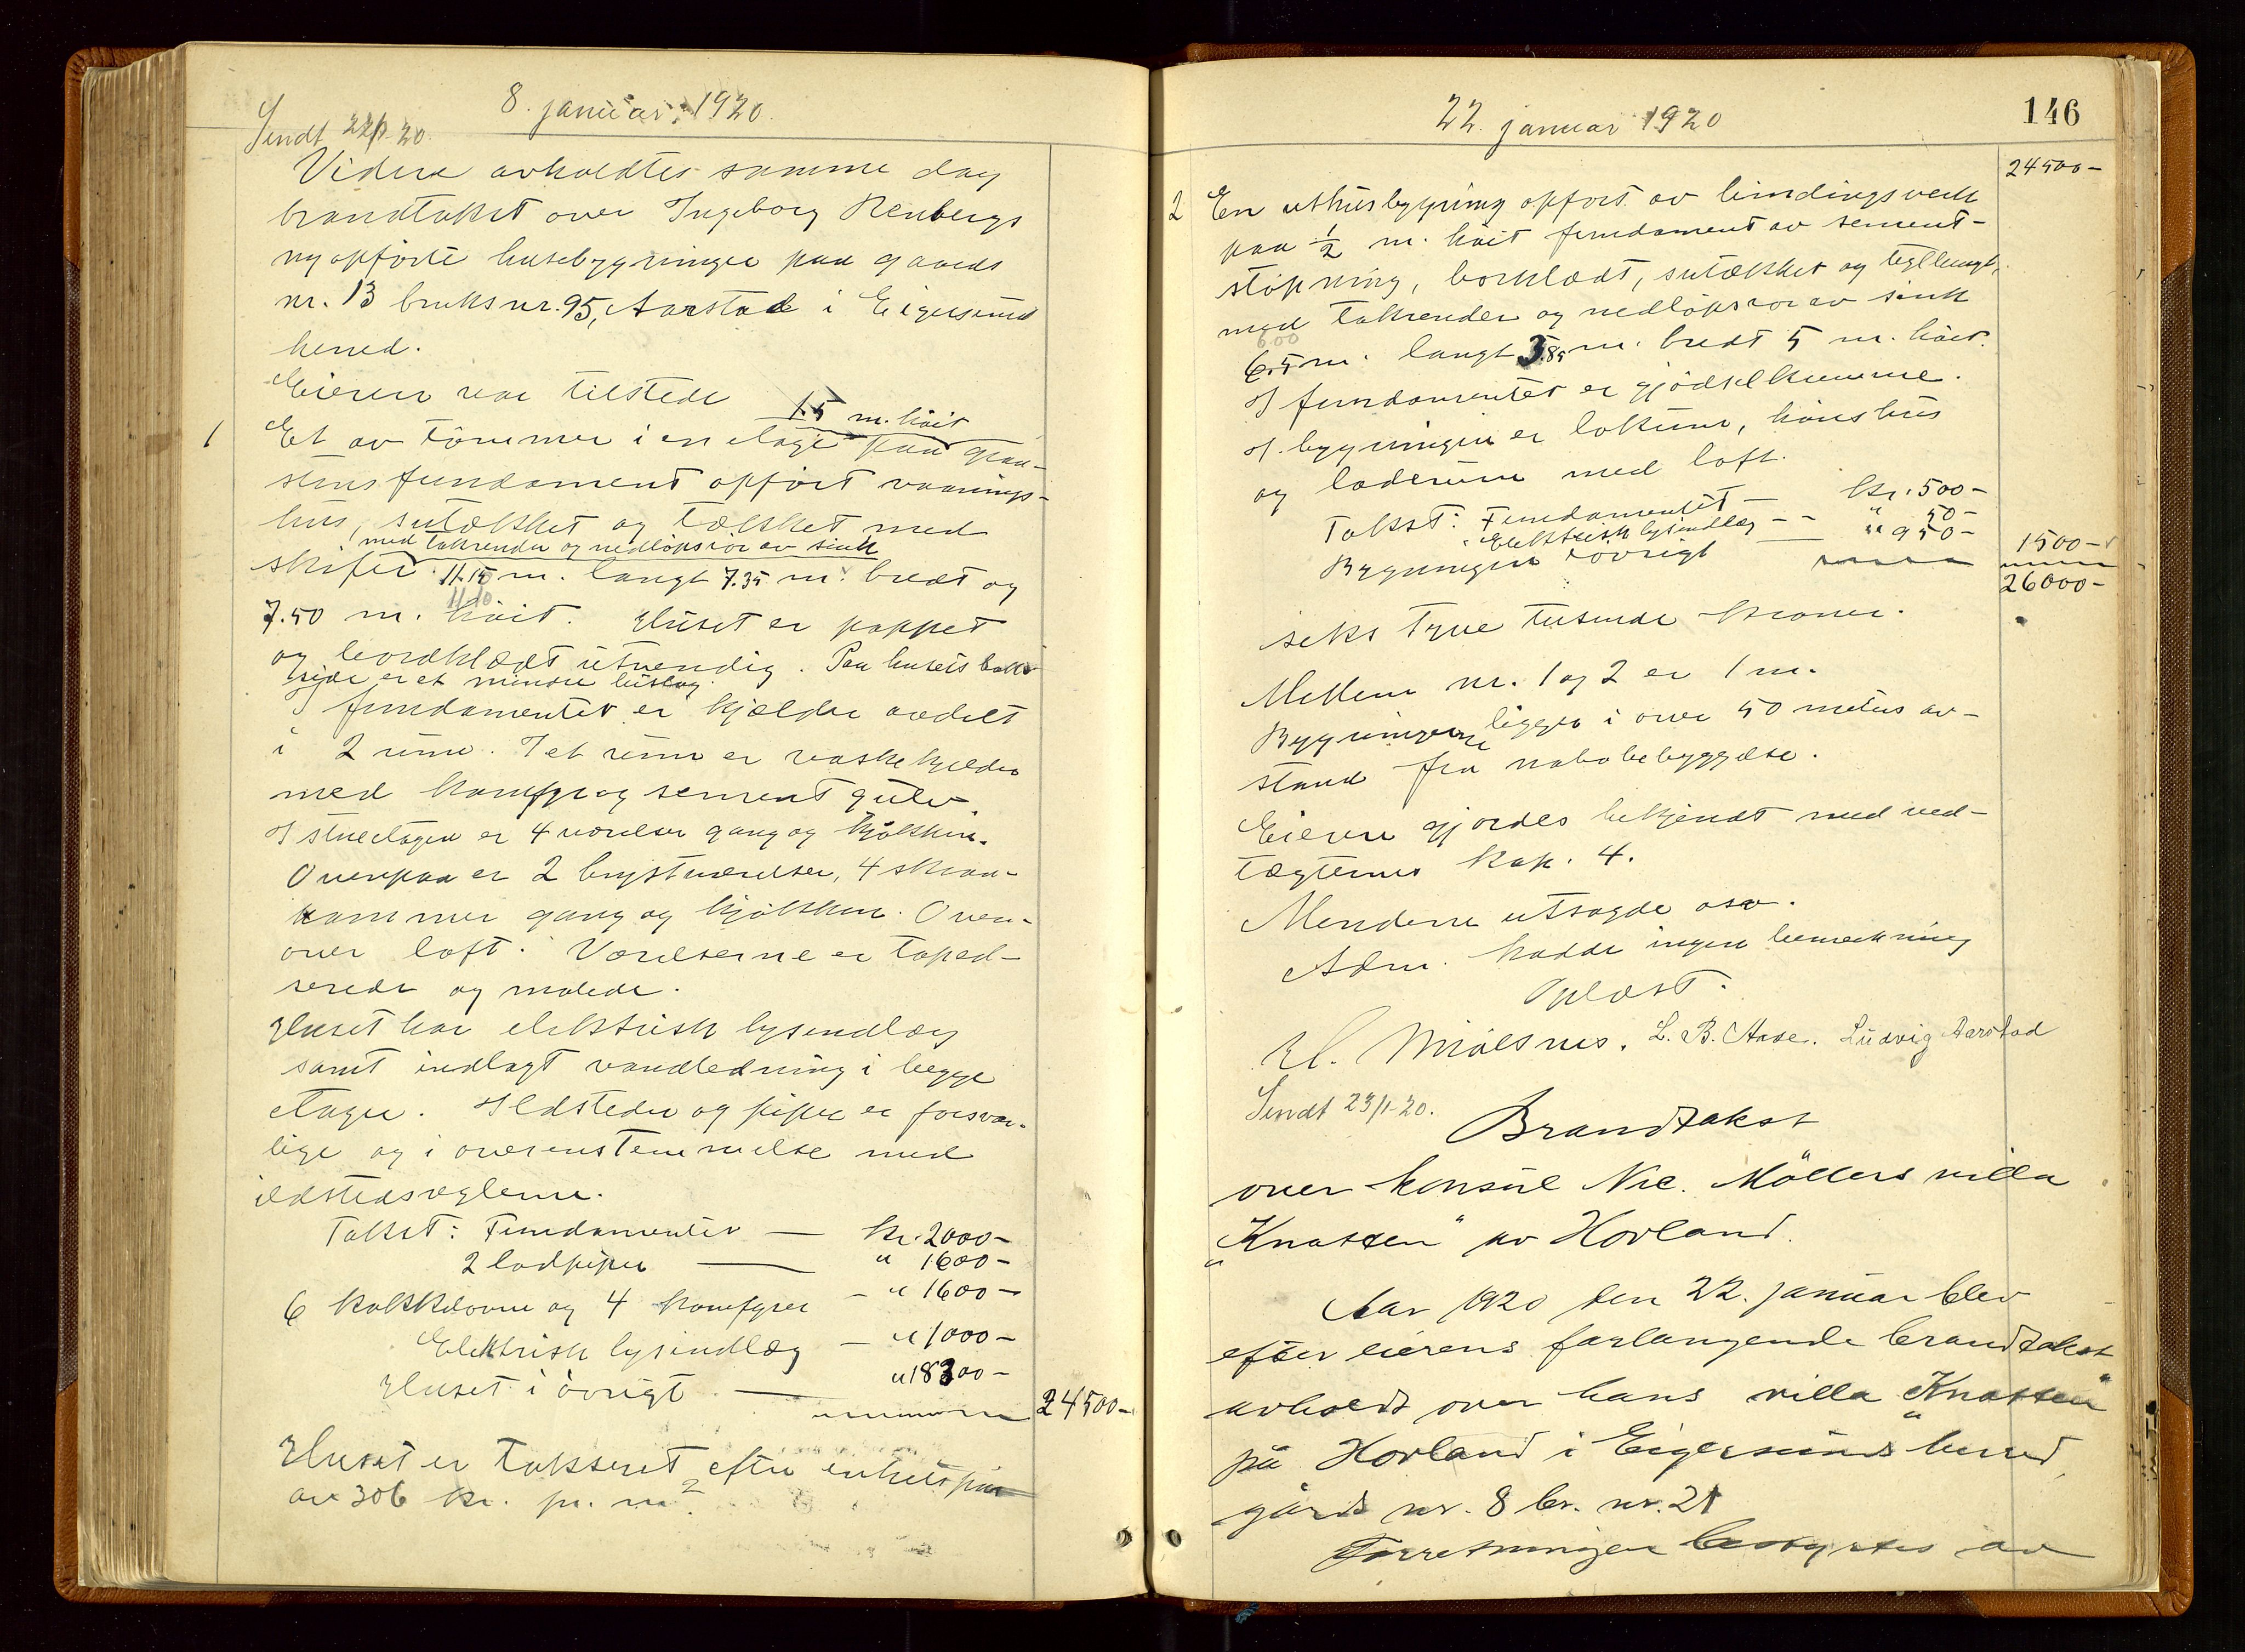 8. januar 1920.
Sendt 22/1-20.
Videre avholdtes samme dag
brandtakst over Ingeborg Renbergs
nyopförte husebygninger paa gaards
nr. 13 bruksnr. 95, Aarstad i Eigersund
herred.
Eieren var tilstede
1.5 m. höit
1 Et av tömmer i en etage paa graa-
stensfundament opfört vaanings-
hus, sutækket og tækket med
med takrender og nedlöpsrör av sink
skifer 11.15 m. langt 7.35 m. bredt og
11.10
7.50 m. höit. Huset er pappet
og bordklædt utvendig. Paa husets bak-
side er et mindre bislag.
I fundamentet er kjælder avdelt
i 2 rum. I et rum er vaskekjelder
med komfyr og sement gulv.
I stueetagen er 4 værelser gang og kjökken.
Ovenpaa er 2 brystværelser, 4 skraa-
kammer gang og kjökken. Oven-
over loft. Værelserne er taped-
serede og malede.
Huset har elektrisk lysindlæg
samt indlagt vandledning i begge
etager. Ildsteder og piper er forsvar-
lige og i overenstemmelse med
ildstedsreglerne.
Takst: Fundamentet — kr. 2000-
2 ladpiper — " 1600-
6 kakkelovne og 4 komfyrer - " 1600-
Elektrisk lysindlæg — " 1000-
Huset i övrigt — " 18300-
24500-
Huset er takseret efter enhetspris
av 306 kr. pr. m²
22. januar 1920
146
24500-
2 En uthusbygning opfört av bindingsverk
paa ½ m. höit fundament av sement-
stöpning, bordklædt, sutækket og tegllengt,
med takrender og nedlöpsrör av sink
6.00
6.5 m. langt 3.85 m. bredt 5 m. höit.
I fundamentet er gjödselkumme.
I bygningen er lokum, hönshus
og laderum med loft.
Takst: Fundamentet — kr. 500-
" Elektrisk lysindlæg — " 50-
Bygningen iövrigt — " 950-
1500-
26000-
seks tyve tusinde kroner.
Mellem nr. 1 og 2 er 1 m.
Bygningerne ligger i over 50 meters av-
stand fra nabobebyggelse.
Eieren gjordes bekjendt med ved-
tægternes kap. 4.
Mendene utsagde osv.
Adm. hadde ingen bemerkning
Oplæst.
H. Mjölsnes. L. B. Aase. Ludvig Aarstad
Sendt 23/1-20.
Brandtakst
over konsul Nic. Möllers villa
"Knatten" av Hovland.
Aar 1920 den 22. januar blev
efter eierens forlangende brandtakst
avholdt over hans villa "Knatten"
på Hovland i Eigersunds herred,
gårds nr. 8 br. nr. 21
Forretningen bestyrtes av